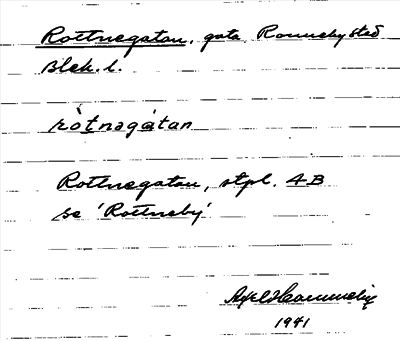 Rottnegatan, gata Ronneby stad
Blek. l.
ròtnəgátan
Rottnegatan, stpl. 4B
se 'Rottneby'
Axel
1941